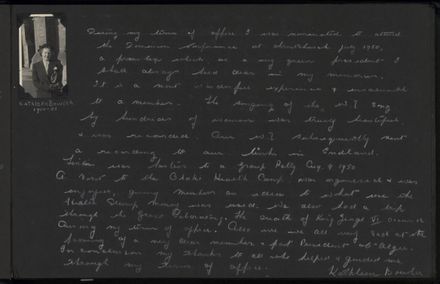 KATHLEEN BOWLER
During my term of office I was nominated to attend
the Dominion Conference at July 1950,
a privilege which as a very green president I
shall always hold dear in my memories.
It is a most wonderful experience & invaluable
to a member. The singing of the W I Song
by hundreds of women was truly beautiful
& was recorded. Our W I subsequently sent
a recording to our links in England.
was hostess to a Group Rally Aug. 9 1950
A visit to the Otaki Health Camp was organised & was
enjoyed, giving members an idea to what use the
Health Stamp money was used. We also had a trip
through the Glass Blowing. The death of King George VI occurred
during my term of office. Also we were all very sad at the
passing of a very dear member & past President Mrs Alger.
In conclusion my thanks to all who helped & guided me
through my term of office.
Kathleen Bowler